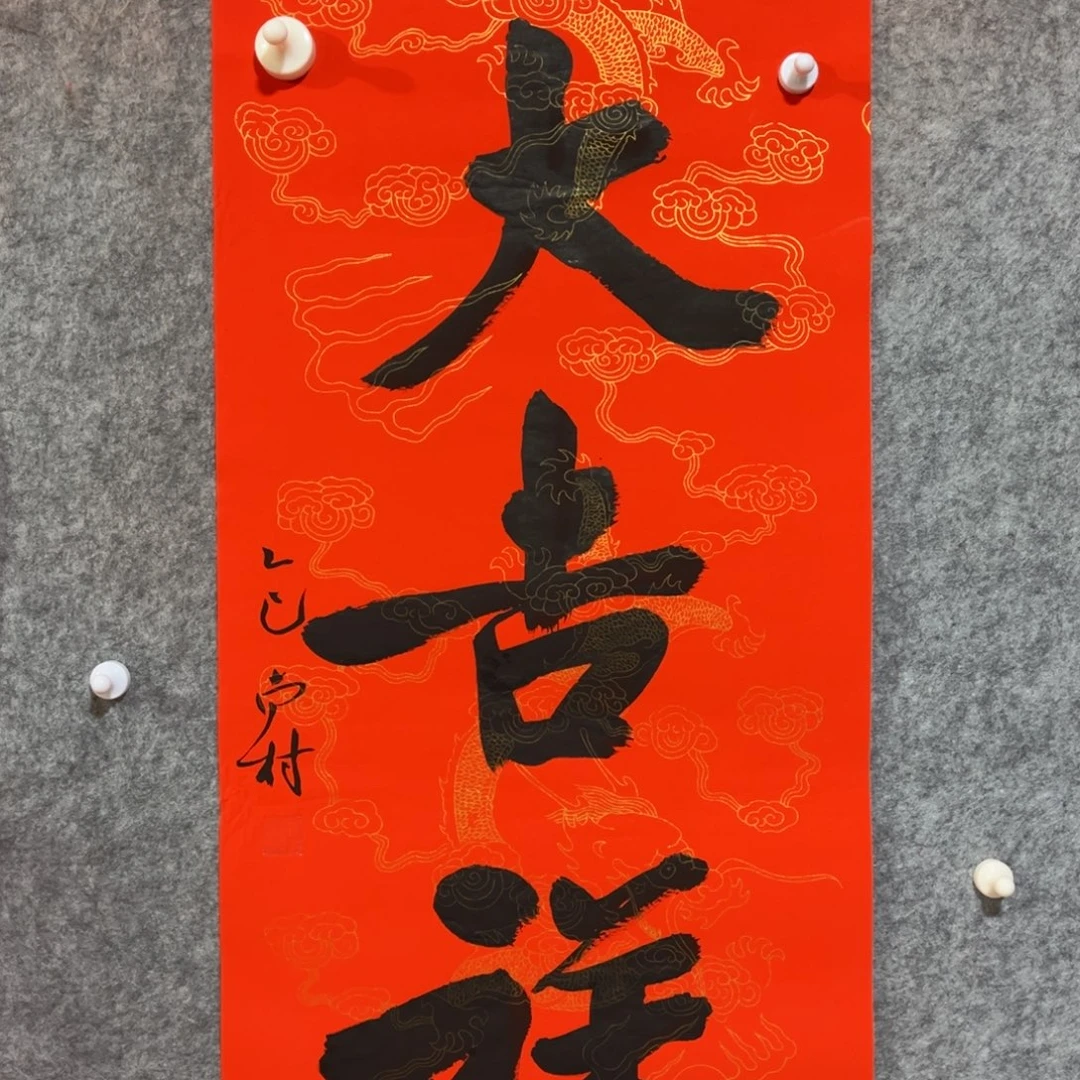 大吉祥
乙巳 宁村